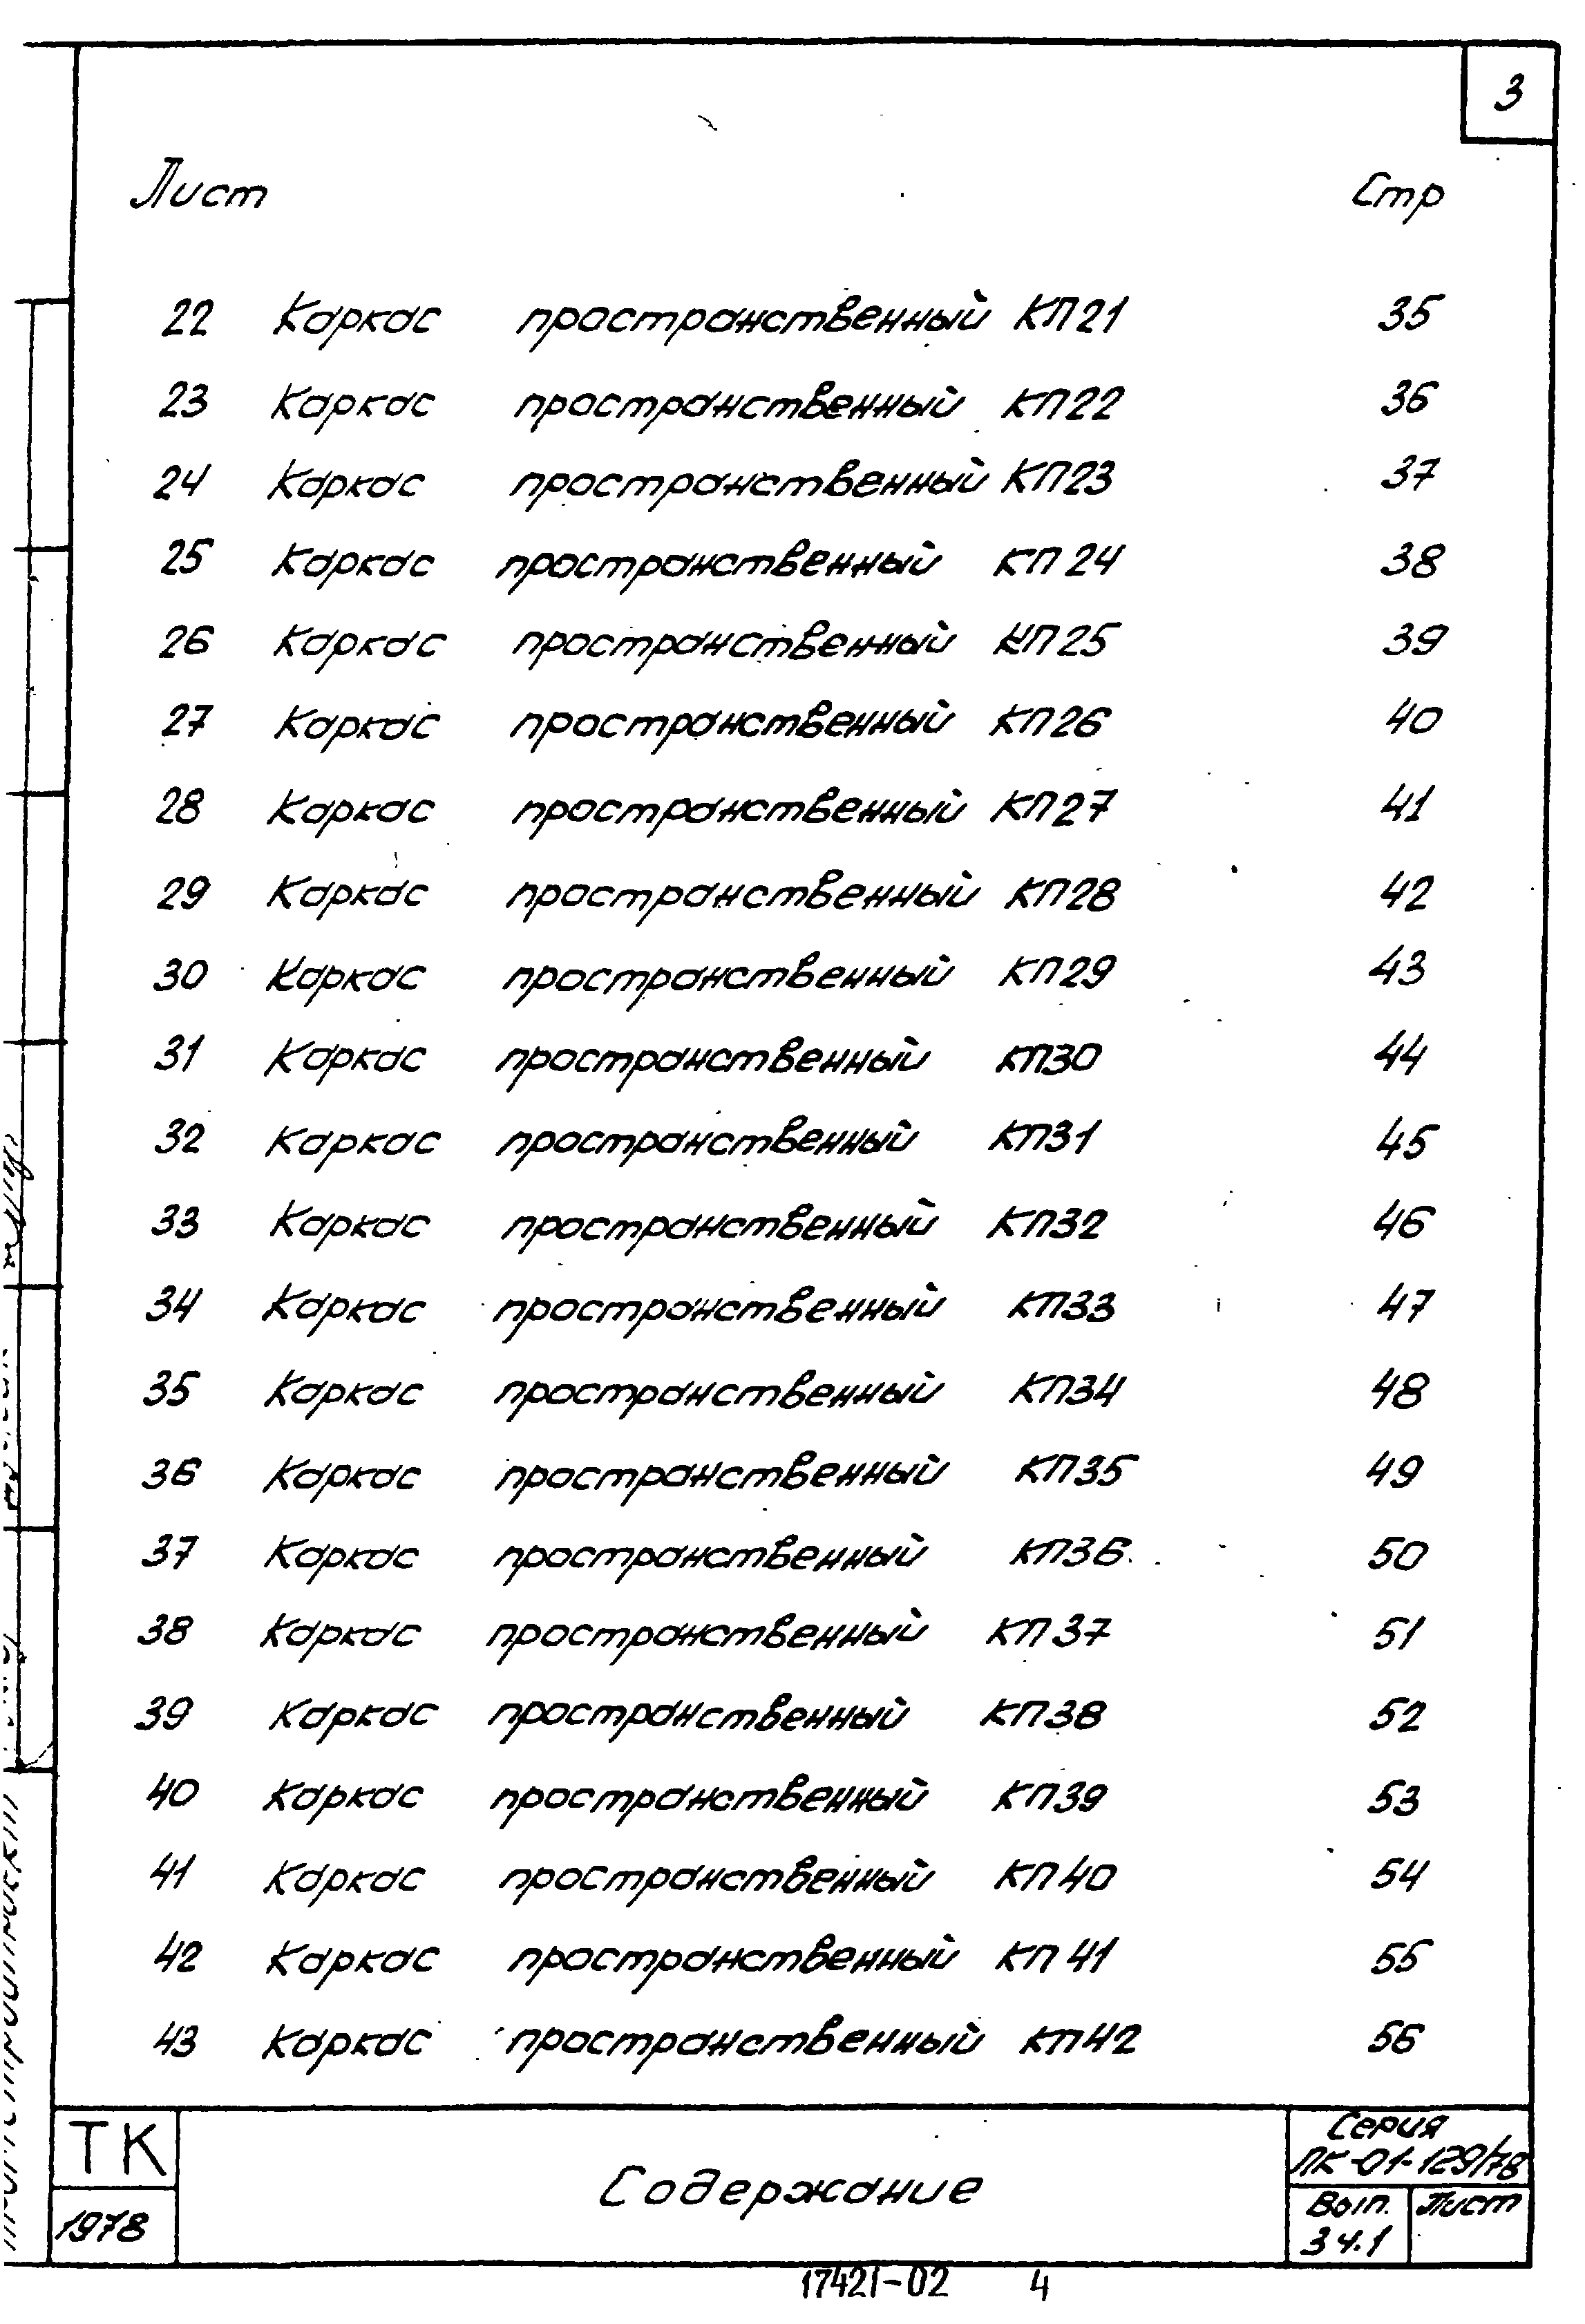 3
Лист Стр
22 Каркас пространственный КП21 35
23 Каркас пространственный КП22 36
24 Каркас пространственный КП23 37
25 Каркас пространственный КП 24 38
26 Каркас пространственный КП25 39
27 Каркас пространственный КП26 40
28 Каркас пространственный КП27 41
29 Каркас пространственный КП28 42
30 Каркас пространственный КП29 43
31 Каркас пространственный КП30 44
32 Каркас пространственный КП31 45
33 Каркас пространственный КП32 46
34 Каркас пространственный КП33 47
35 Каркас пространственный КП34 48
36 Каркас пространственный КП35 49
37 Каркас пространственный КП36 50
38 Каркас пространственный КП 37 51
39 Каркас пространственный КП38 52
40 Каркас пространственный КП39 53
41 Каркас пространственный КП 40 54
42 Каркас пространственный КП 41 55
43 Каркас пространственный КП42 56
ТК
1978
Содержание
Серия
ПК-01-129/78
Вып. Лист
3 ч.1
17421-02 4